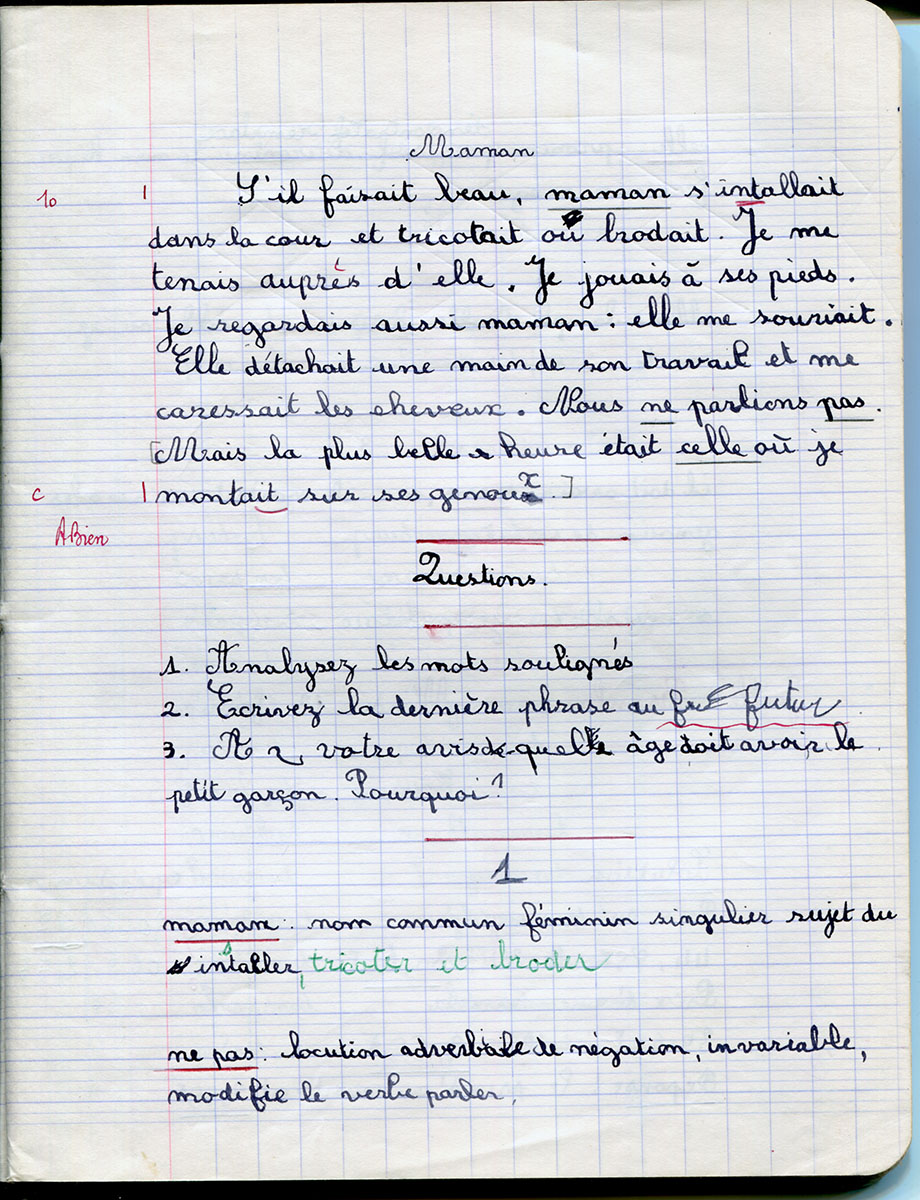 Maman
10 1 S'il faisait beau, maman s'intallait
dans la cour et tricotait où brodait. Je me
tenais auprès d'elle. Je jouais à ses pieds.
Je regardais aussi maman : elle me souriait.
Elle détachait une main de son travail et me
caressait les cheveux. Nous ne parlions pas.
[Mais la plus belle heure était celle où je
C 1 montait sur ses genoux.]
ABien
Questions.
1. Analysez les mots soulignés
2. Ecrivez la dernière phrase au futur
3. A votre avis quel âge doit avoir le
petit garçon. Pourquoi?
1
maman : nom commun féminin singulier sujet du
intaller, tricoter et broder
ne pas : locution adverbiale de négation, invariable,
modifie le verbe parler.